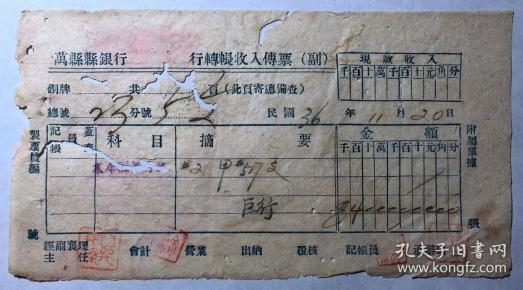 萬縣縣銀行 行轉帳收入傳票（副）
現款收入
千百十萬千百十元角分
銅牌 共 頁（此頁寄總備查）
總號 23 分號 52 民國36年11月20日
記帳員 蓋章 科目 摘要 金額
千百十萬千百十元角分
附屬單據
張
製票員編
號
#2 甲#517支
巨行
84
經副襄理
主任
會計 營業 出納 覆核 記帳員
孔夫子旧书网
www.kongfz.com